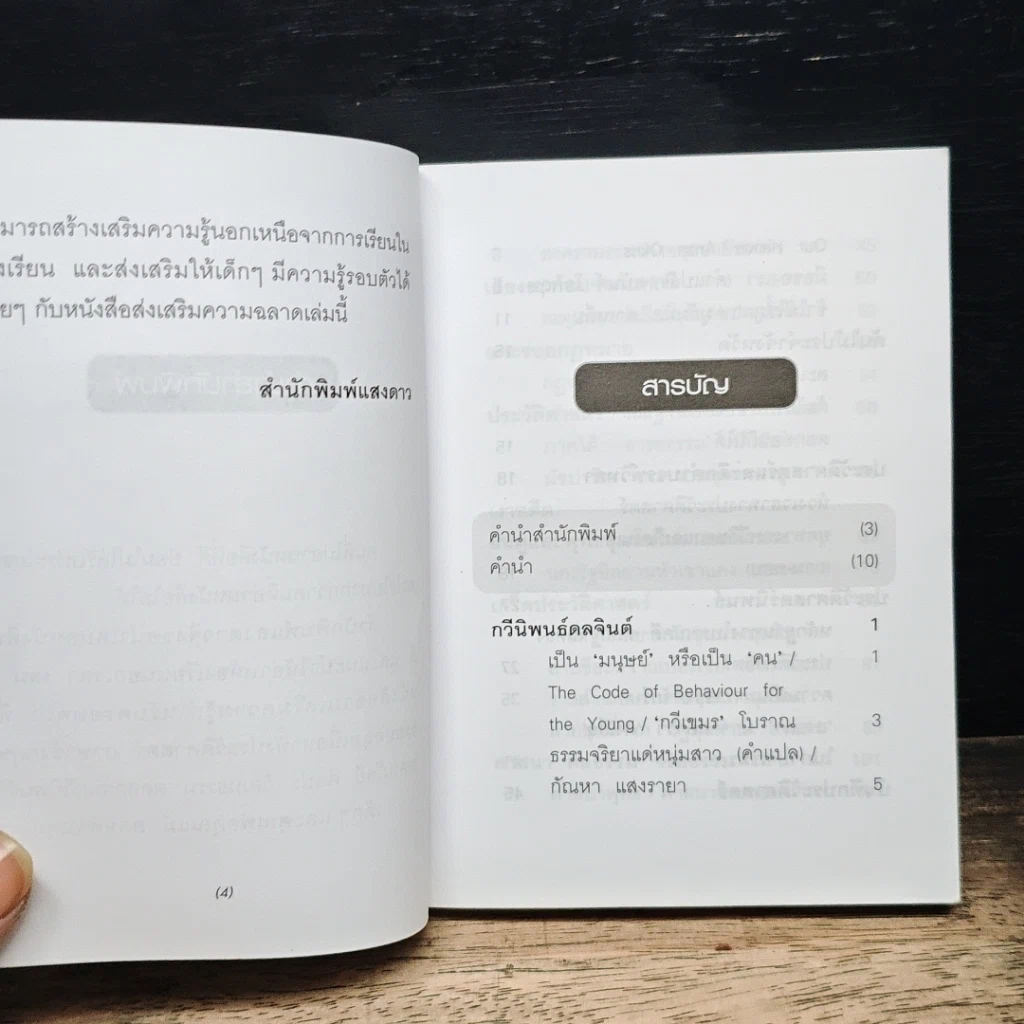 มารถสร้างเสริมความรู้นอกเหนือจากการเรียนใน
งเรียน และส่งเสริมให้เด็กๆ มีความรู้รอบตัวได้
ยๆ กับหนังสือส่งเสริมความฉลาดเล่มนี้
สำนักพิมพ์แสงดาว
(4)
สารบัญ
คำนำสำนักพิมพ์ (3)
คำนำ (10)
กวีนิพนธ์ดลจินต์ 1
เป็น ‘มนุษย์’ หรือเป็น ‘คน’ / 1
The Code of Behaviour for
the Young / ‘กวีเขมร’ โบราณ 3
ธรรมจริยาแด่หนุ่มสาว (คำแปล) /
กัณหา แสงรายา 5